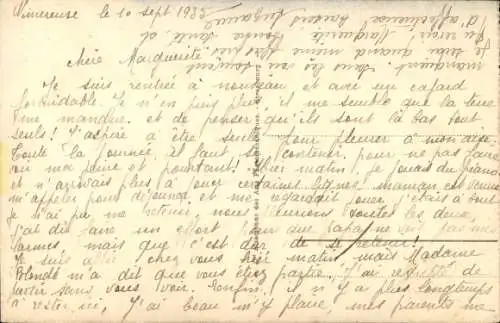 Wimereuse le 10 sept 1932
Chère Marguerite
Je suis rentrée à nouveau et avec un cafard
formidable. Je n'en puis plus, il me semble que la terre
me manque. et de penser qu'ils sont là bas tout
seuls! J'aspire à être seule pour pleurer à mon aise.
toute la journée il faut se contenir pour ne pas faire
voir ma peine et pourtant! Hier matin, je jouais du piano
et n'arrivais plus à jouer certaines lignes. maman est venue
m'appeler pour déjeuner et me regardait jouer j'étais à bout
Je n'ai pu me retenir, nous pleurions toutes les deux,
J'ai dû faire un effort pour que papa ne voie pas mes
larmes, mais que c'est dur de se retenir!
Je suis allée chez vous hier matin mais Madame
m'a dit que vous étiez partie. J'ai regretté de
partir sans vous voir. Enfin, il n'y a plus longtemps
à rester ici, J'ai beau m'y plaire, mes parents me
manquent. souvent
je serai quand même
au revoir Marguerite Bonne santé,
d'affectueux baisers Suzanne